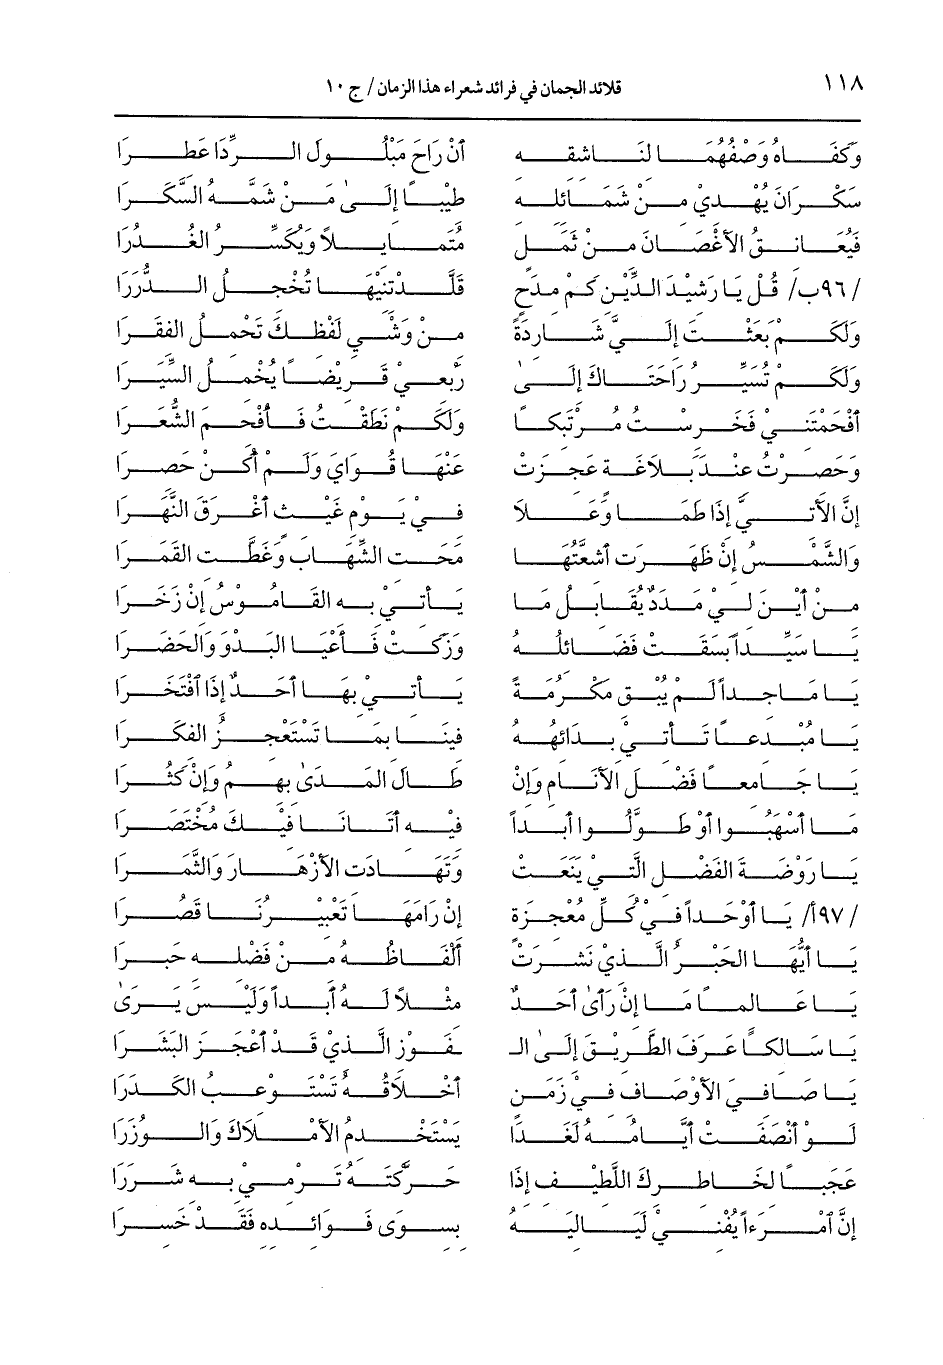 ١١٨ قلائد الجمان في فرائد شعراء هذا الزمان/ ج ١٠
وَكَفَاهُ وَصْفُهُمَا لنَاشقه أنْ رَاحَ مَبْلُولَ الرِّدَا عَطرَا
سَكْرَانَ يُهْدِي منْ شَمَائله طيْبًا إلَىٰ مَنْ شَمَّهُ السَّكَرَا
فَيُعَانقُ الأغْصَانَ منْ ثَمَل مُتَمَايلاً وَيُكَسِّرُ الغُدُرَا
/٩٦ب/ قُلْ يَا رَشيْدَ الدِّيْن كَمْ مدَحٍ قَلَّدْتنيْهَا تُخْجلُ الدُّرَرَا
وَلَكَمْ بَعَثْتَ إلَيَّ شَاردَةً منْ وَشْي لَفْظكَ تَحْملُ الفقَرَا
وَلَكَمْ تُسَيِّرُ رَاحَتَاكَ إلَىٰ رَبْعيْ قَريْضًا يُخْملُ السِّيَرَا
أفْحَمْتَنيْ فَخَرسْتُ مُرْتَبكًا وَلَكَمْ نَطَقْتُ فَأفْحَمَ الشُّعَرَا
وَحَصرْتُ عنْدَ بَلاَغَة عَجزَتْ عَنْهَا قُوَايَ وَلَمْ أكُنْ حَصرَا
إنَّ الأتيَّ إذَا طَمَا وَعَلاَ فيْ يَوْم غَيْث أغْرَقَ النَّهَرَا
وَالشَّمْسُ إنْ ظَهَرَت أشعَّتُهَا مَحَت الشِّهَابَ وَغَطَّت القَمَرَا
منْ أيْنَ ليْ مَدَدٌ يُقَابلُ مَا يَأتيْ به القَامُوْسُ إنْ زَخَرَا
يَا سَيِّداً بَسَقَتْ فَضَائلُهُ وَزَكَتْ فَأعْيَا البَدْوَ وَالحَضَرَا
يَا مَاجداً لَمْ يُبْق مَكْرُمَةً يَأتيْ بهَا أحَدٌ إذَا افْتَخَرَا
يَا مُبْدعاً تَأتيْ بدَائهُهُ فيْنَا بمَا تَسْتَعْجزُ الفكَرَا
يَا جَامعًا فَضْلَ الأنَام وَإنْ طَالَ المَدَىٰ بهمُ وَإنْ كَثُرَا
مَا أسْهَبُوا أوْ طَوَّلُوا أبَداً فيْه أتَانَا فيْكَ مُخْتَصَرَا
يَا رَوْضَةَ الفَضْل الَّتيْ يَنَعَتْ وَتَهَادَت الأزْهَارَ وَالثَّمَرَا
/٩٧أ/ يَا أوْحَداً فيْ كُلِّ مُعْجزَة إنْ رَامَهَا تَعْبيْرُنَا قَصُرَا
يَا أيُّهَا الحَبْرُ الَّذيْ نَشَرَتْ ألْفَاظُهُ منْ فَضْله حبَرَا
يَا عَالماً مَا إنْ رَأىٰ أحَدٌ مثْلاً لَهُ أبَداً وَلَيْسَ يَرَىٰ
يَا سَالكًا عَرَفَ الطَّريْقَ إلَىٰ الـ ـفَوْز الَّذيْ قَدْ أعْجَزَ البَشَرَا
يَا صَافيَ الأوْصَاف فيْ زَمَن أخْلاَقُهُ تَسْتَوْعبُ الكَدَرَا
لَوْ أنْصَفَتْ أيَّامُهُ لَغَدَا يَسْتَخْدمُ الأمْلاَكَ وَالوُزَرَا
عَجَبًا لخَاطركَ اللَّطيْف إذَا حَرَّكْتَهُ تَرْميْ به شَرَرَا
إنَّ امْرَءاً يُفْنيْ لَيَاليَهُ بسوَى فَوَائده فَقَدْ خَسرَا